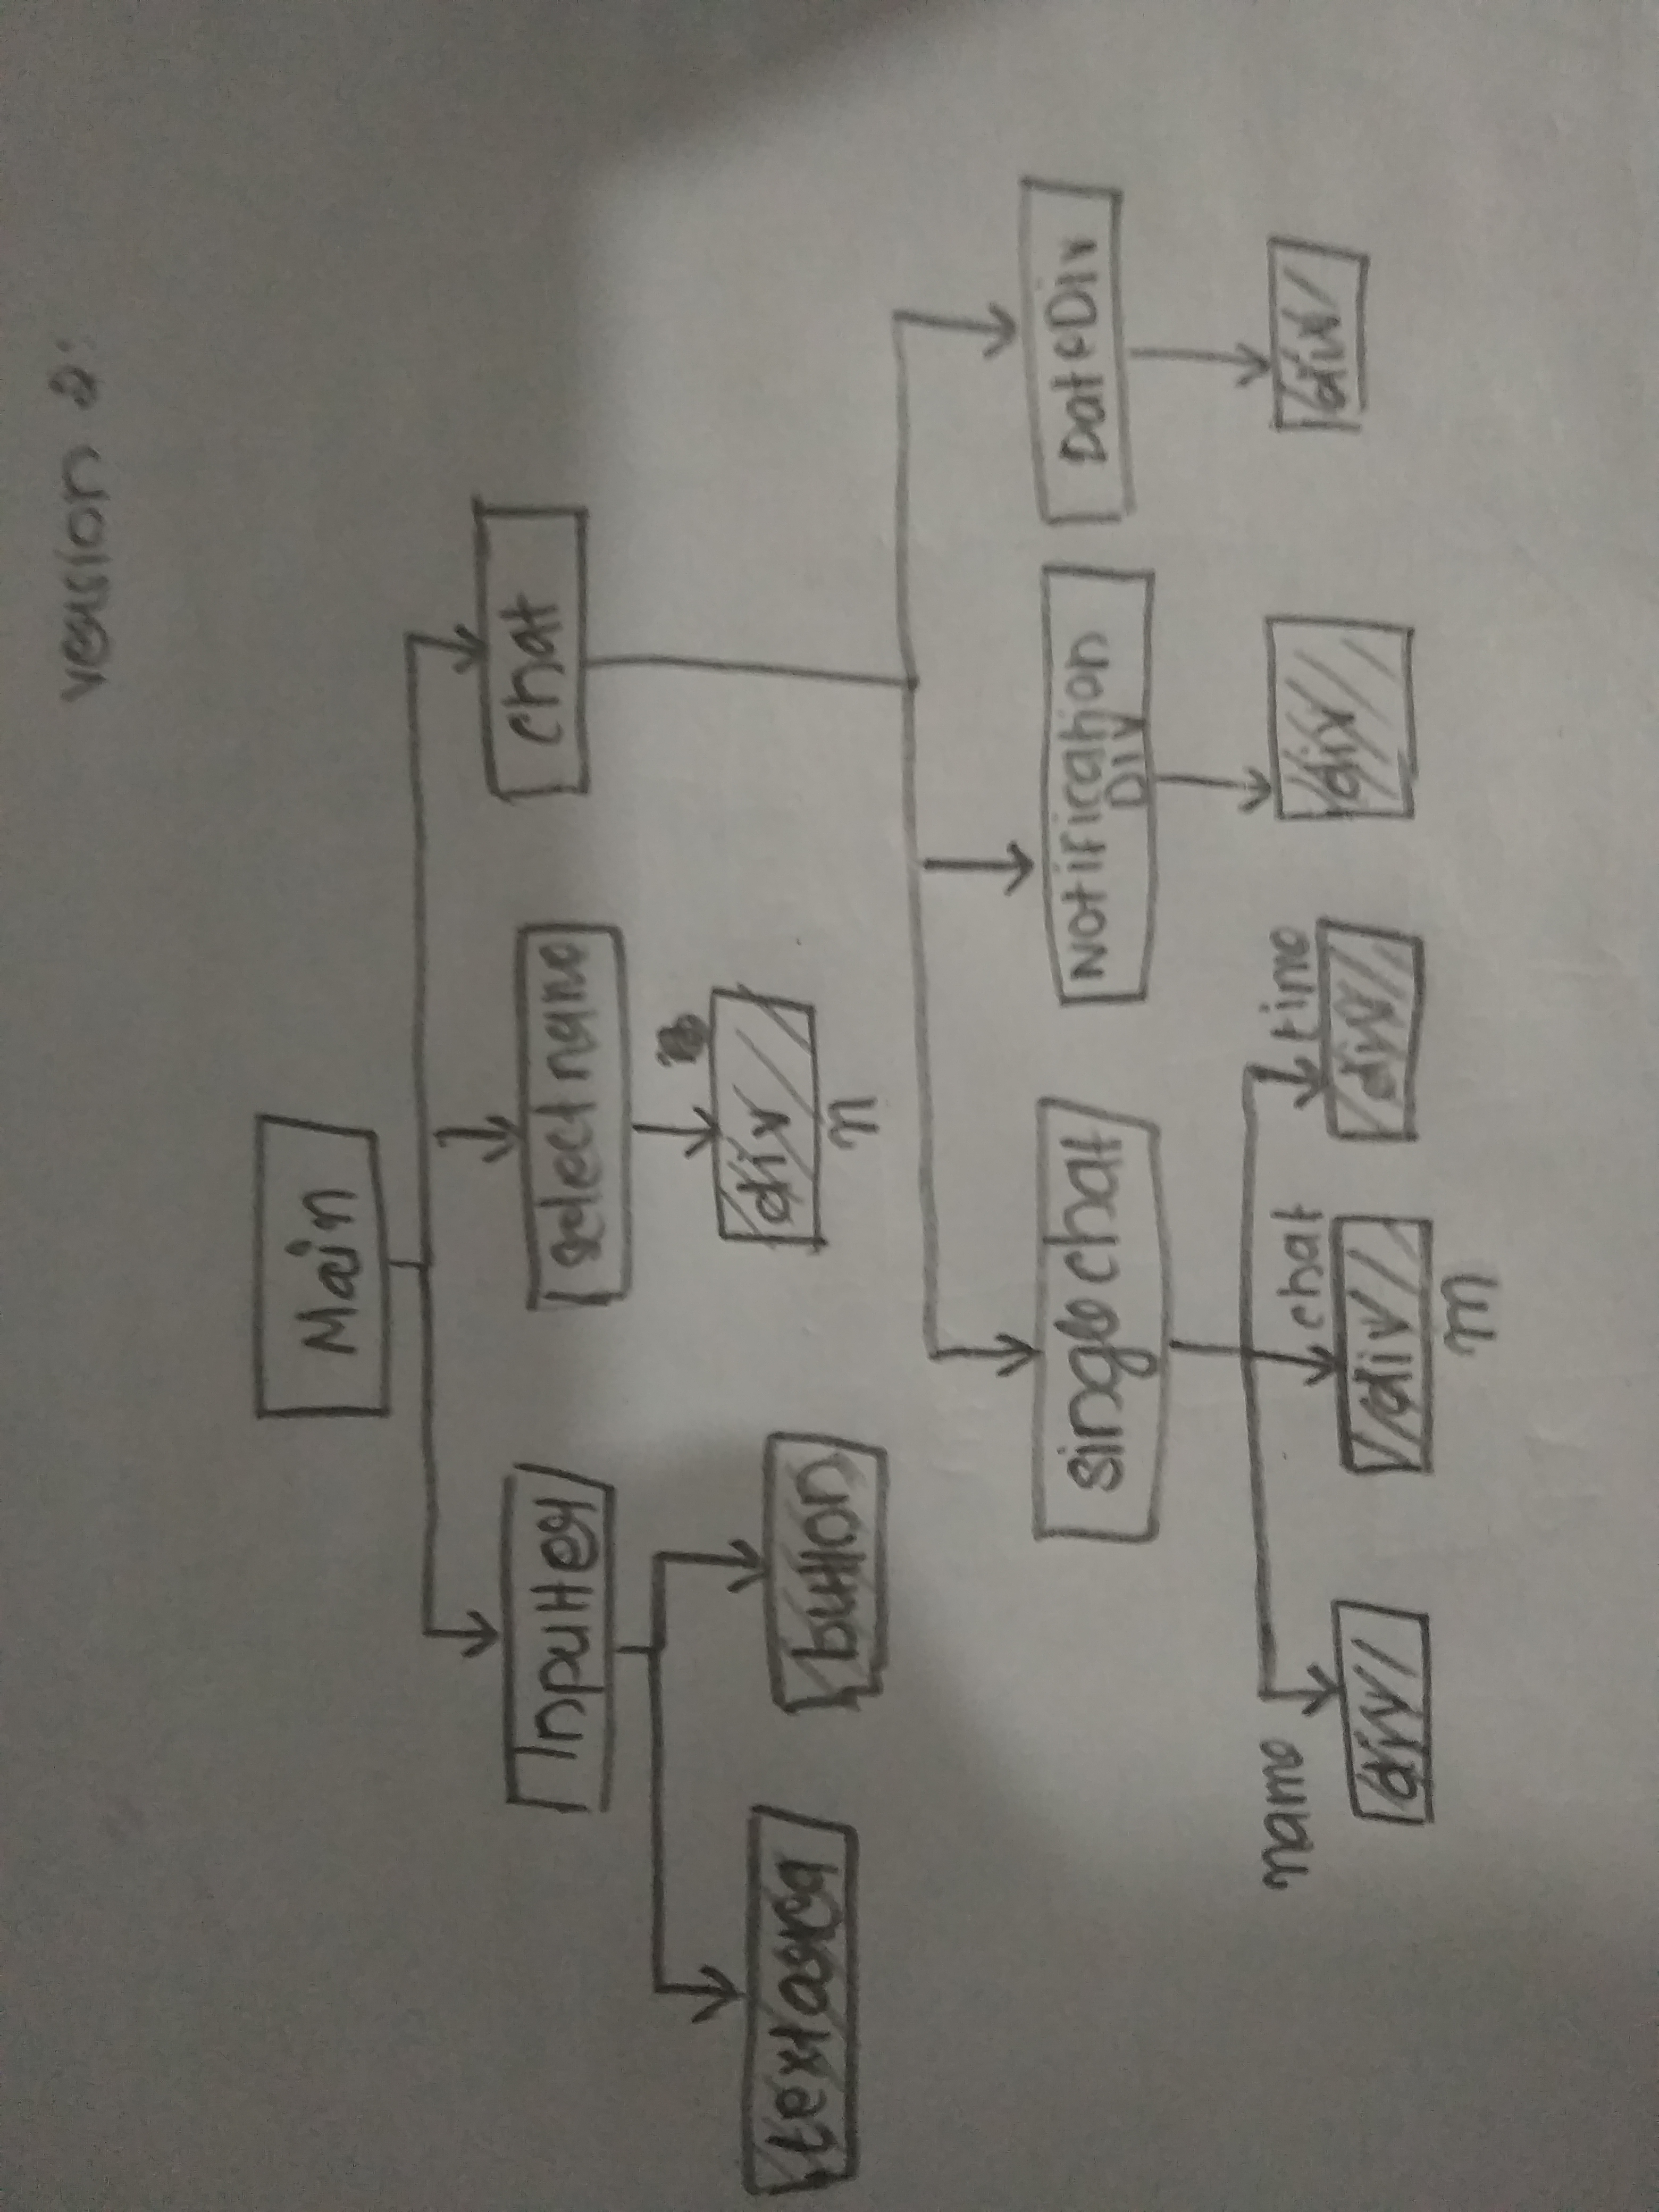 version 2:
Main
Inputter
select name
chat
textarea
button
div
n
single chat
Notification
Div
DateDiv
name
chat
time
div
div
div
div
div
m